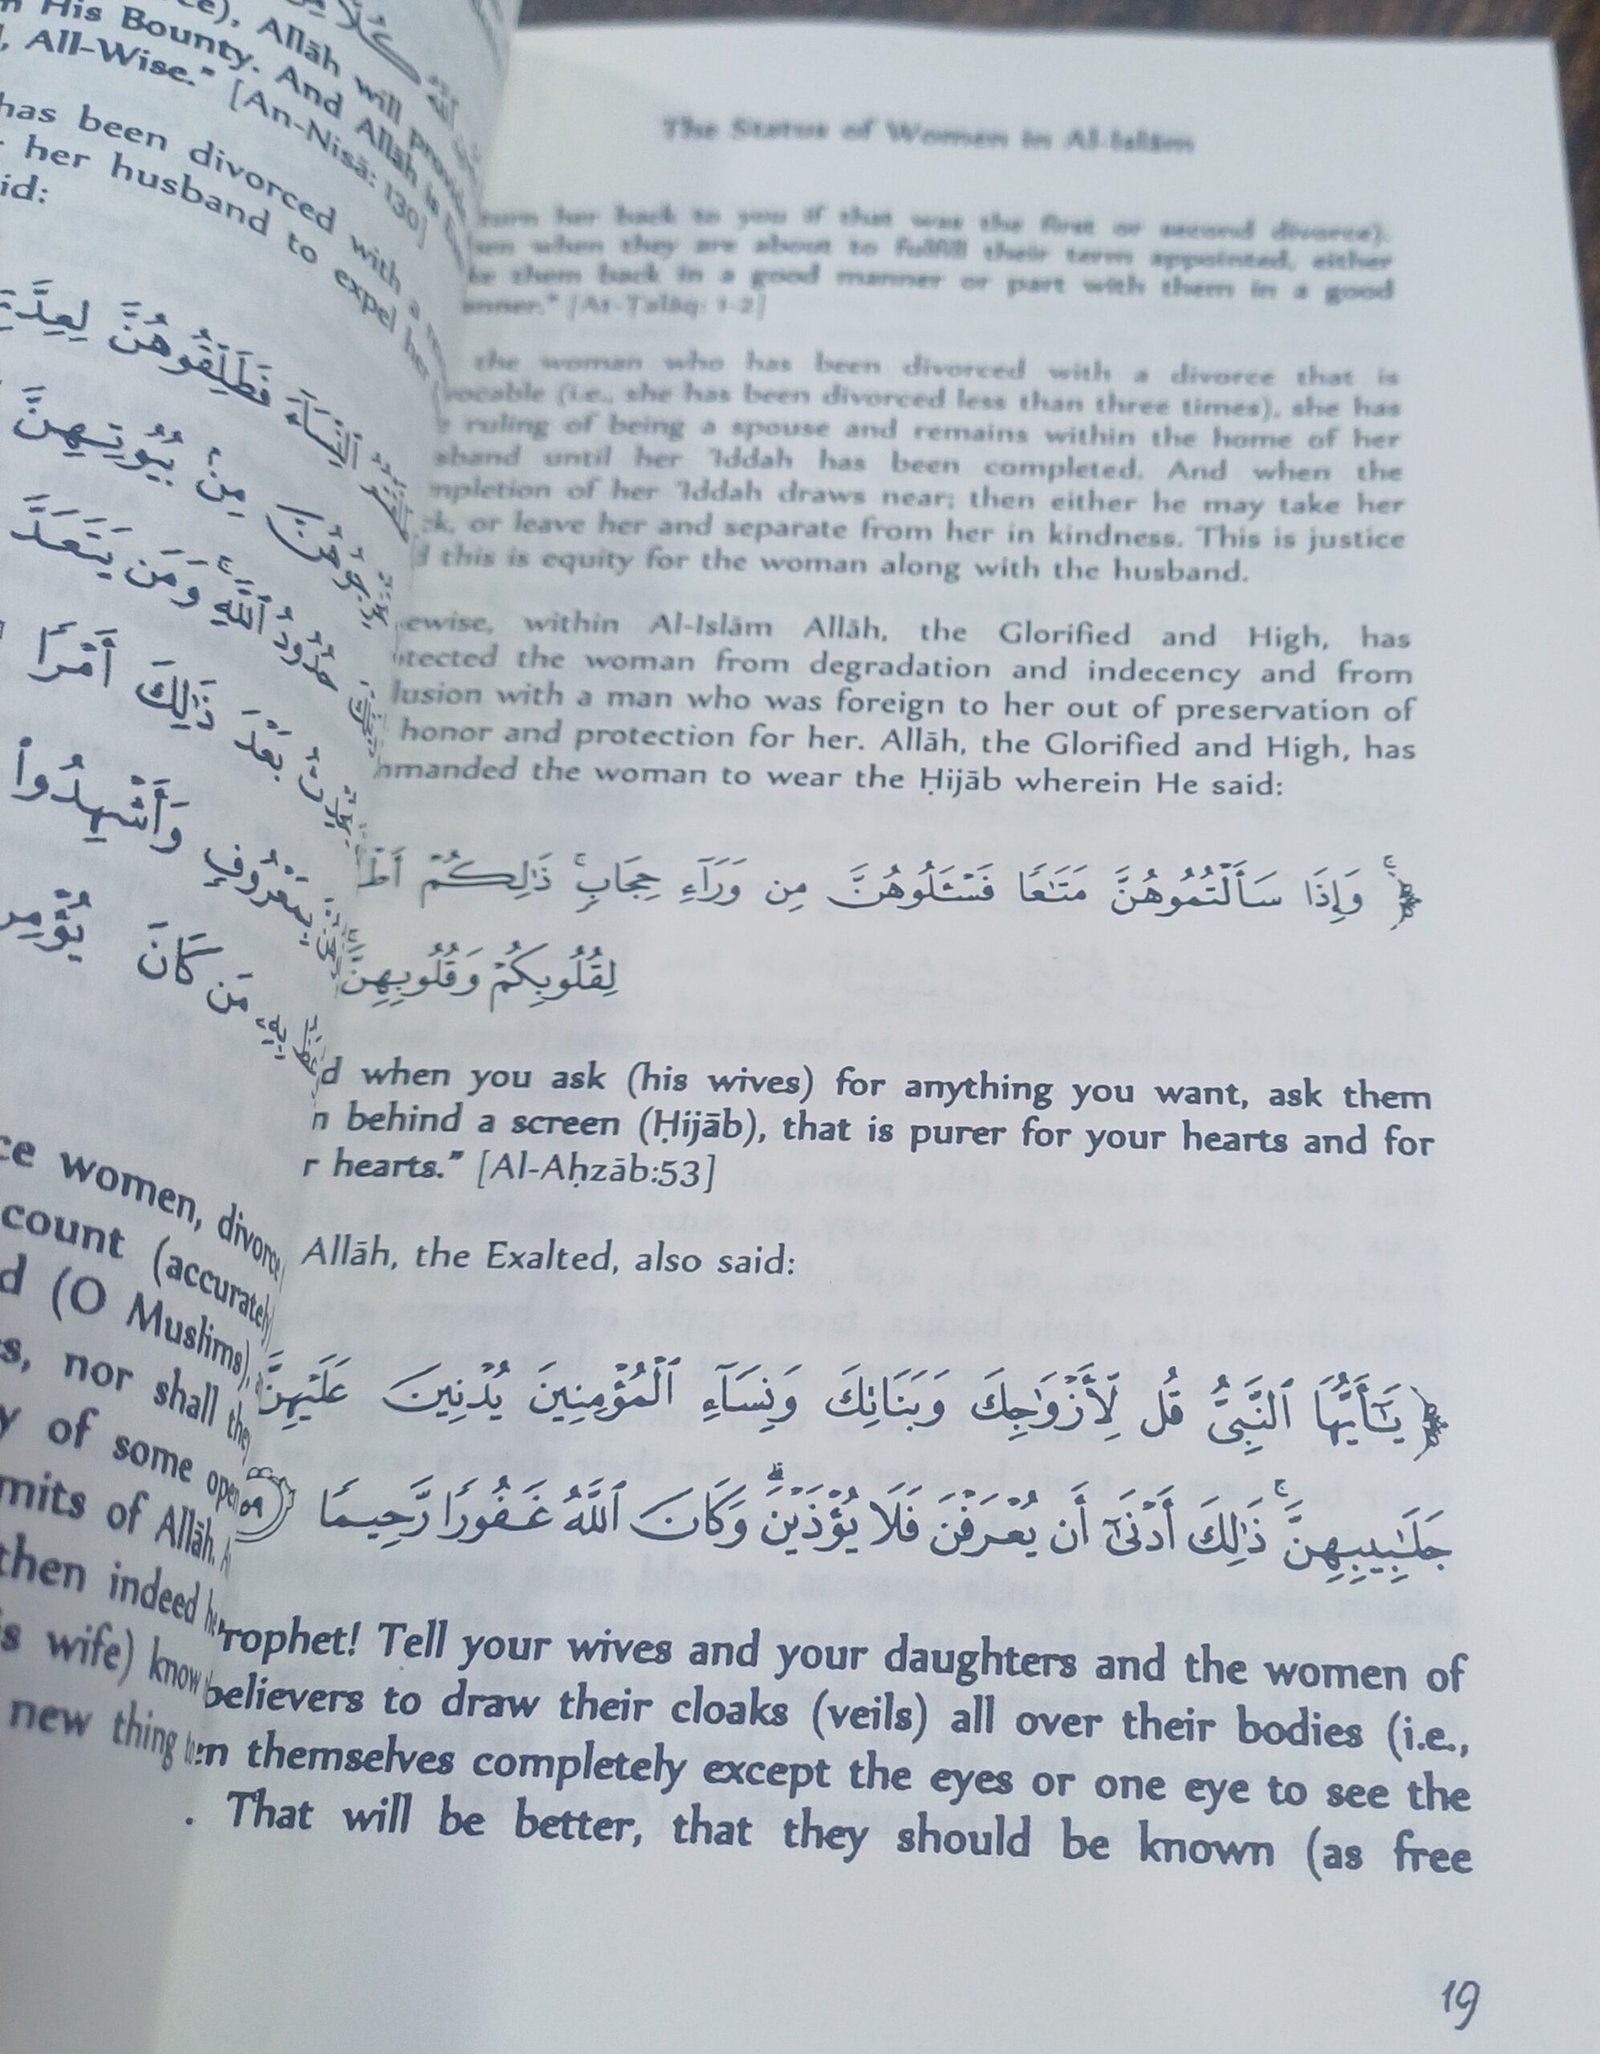 His Bounty. And Allāh is
All-Wise." [An-Nisā: 130]
has been divorced with a
her husband to expel her
فَطَلِّقُوهُنَّ
مِنۢ بُيُوتِهِنَّ
حُدُودُ ٱللَّهِ وَمَن يَتَعَدَّ
بَعْدَ ذَٰلِكَ أَمْرًا
بِمَعْرُوفٍ وَأَشْهِدُوا۟
بِهِۦ مَن كَانَ
women, divorce
count (accurately
(O Muslims),
nor shall they
of some open
of Allāh.
then indeed he
wife) know
new thing to
The Status of Women in Al-Islām
her back to you if that was the first or second divorce).
when they are about to fulfill their term appointed, either
them back in a good manner or part with them in a good
[At-Ṭalāq: 1-2]
the woman who has been divorced with a divorce that is
(i.e., she has been divorced less than three times), she has
ruling of being a spouse and remains within the home of her
until her 'Iddah has been completed. And when the
of her 'Iddah draws near; then either he may take her
or leave her and separate from her in kindness. This is justice
this is equity for the woman along with the husband.
within Al-Islām Allāh, the Glorified and High, has
the woman from degradation and indecency and from
with a man who was foreign to her out of preservation of
honor and protection for her. Allāh, the Glorified and High, has
the woman to wear the Ḥijāb wherein He said:
﴿ وَإِذَا سَأَلْتُمُوهُنَّ مَتَٰعًا فَسْـَٔلُوهُنَّ مِن وَرَآءِ حِجَابٍ ۚ ذَٰلِكُمْ
لِقُلُوبِكُمْ وَقُلُوبِهِنَّ
when you ask (his wives) for anything you want, ask them
behind a screen (Ḥijāb), that is purer for your hearts and for
hearts." [Al-Aḥzāb:53]
Allāh, the Exalted, also said:
﴿ يَٰٓأَيُّهَا ٱلنَّبِىُّ قُل لِّأَزْوَٰجِكَ وَبَنَاتِكَ وَنِسَآءِ ٱلْمُؤْمِنِينَ يُدْنِينَ عَلَيْهِنَّ
جَلَٰبِيبِهِنَّ ۚ ذَٰلِكَ أَدْنَىٰٓ أَن يُعْرَفْنَ فَلَا يُؤْذَيْنَ ۗ وَكَانَ ٱللَّهُ غَفُورًا رَّحِيمًا
Tell your wives and your daughters and the women of
believers to draw their cloaks (veils) all over their bodies (i.e.,
themselves completely except the eyes or one eye to see the
. That will be better, that they should be known (as free
19